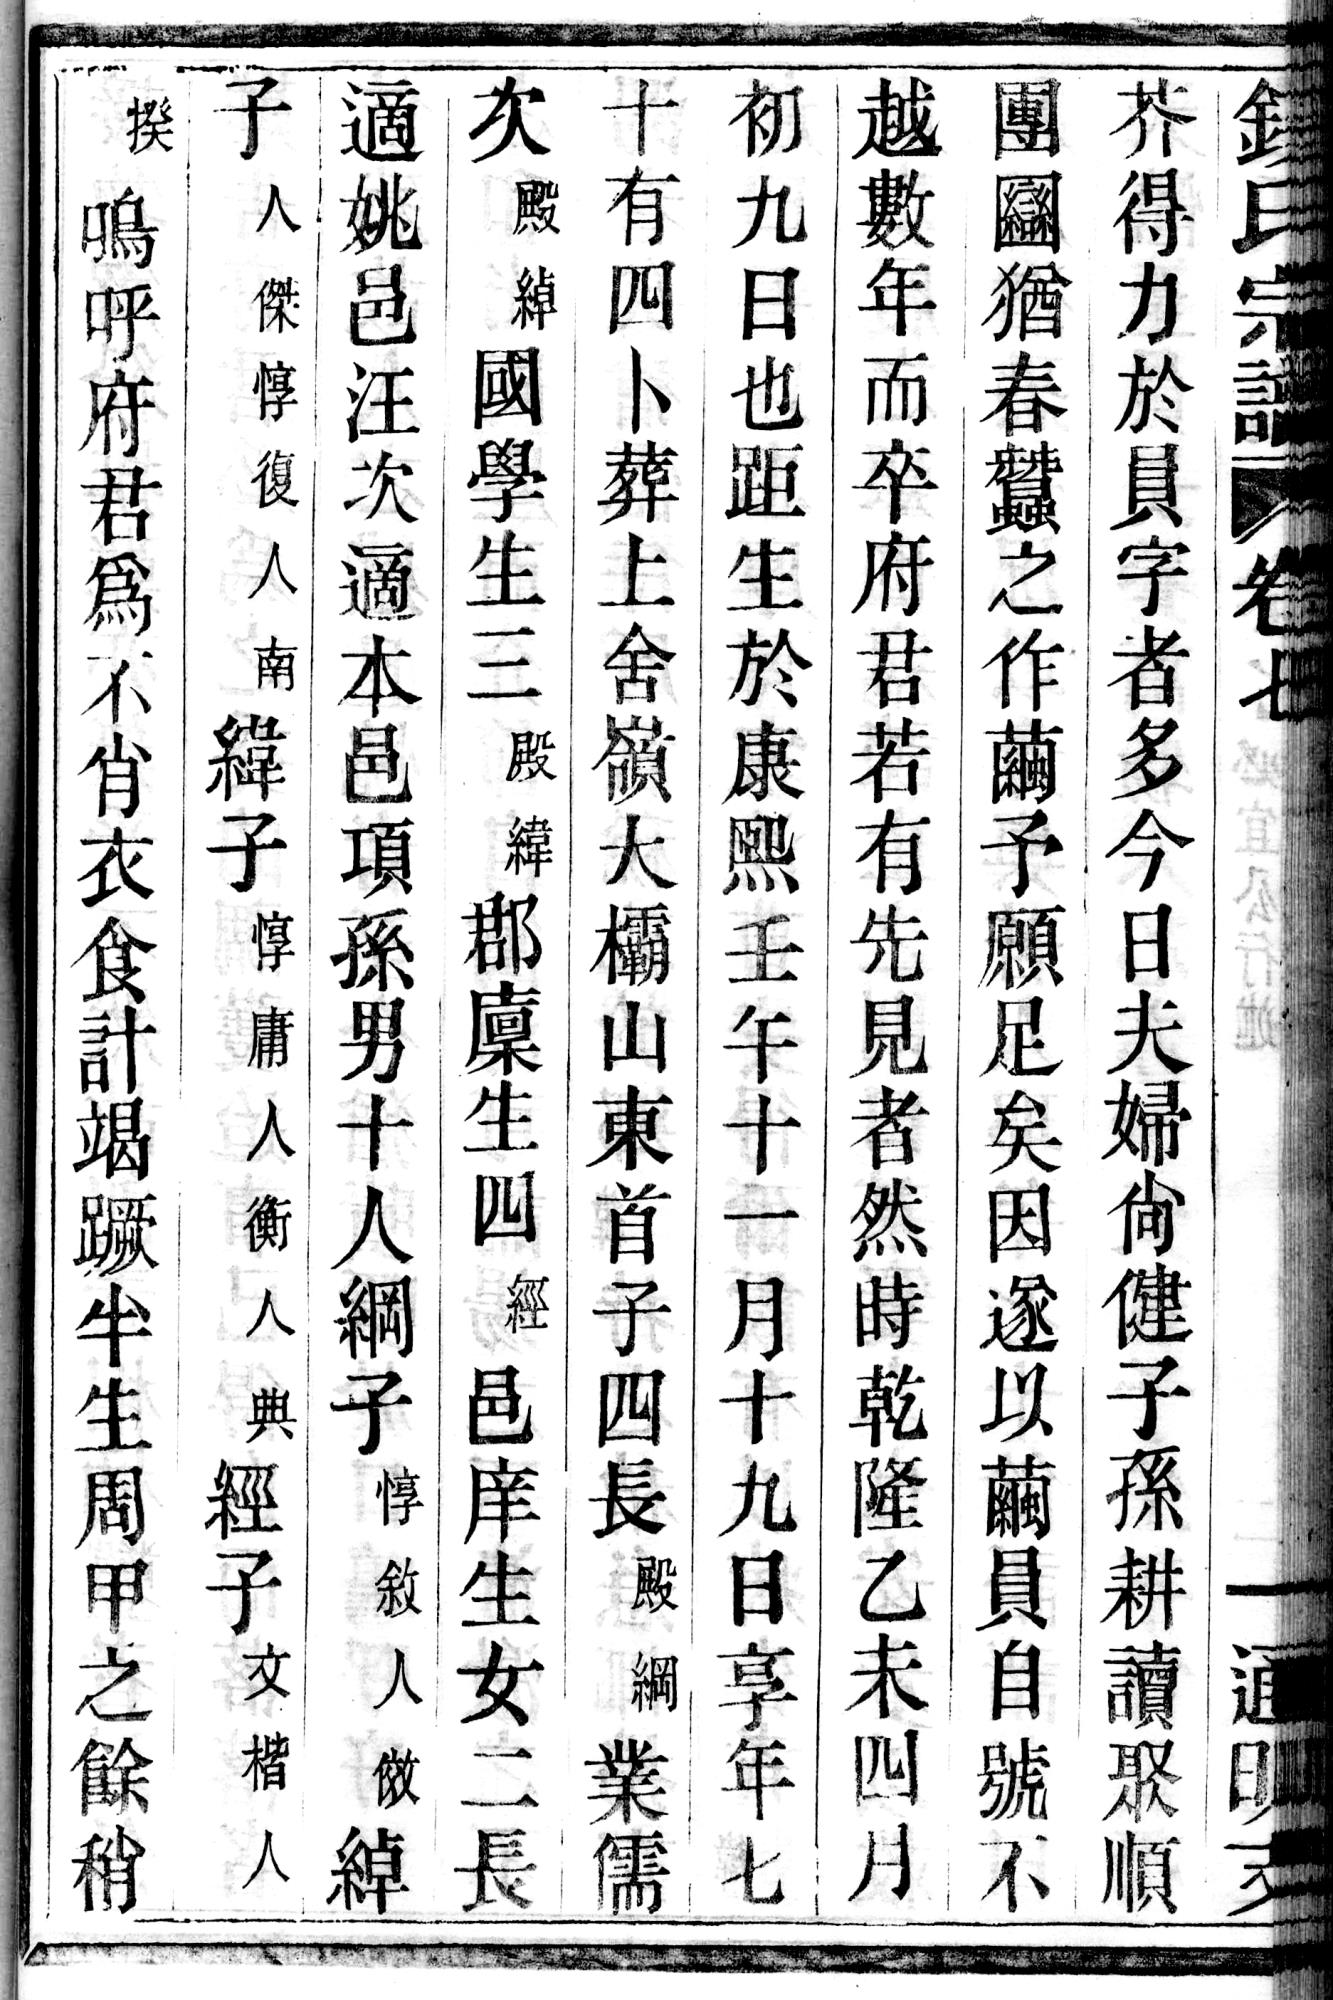 錢氏宗譜 卷七 通明支
芥得力於員字者多今日夫婦尙健子孫耕讀聚順
團圞猶春蠶之作繭予願足矣因遂以繭員自號不
越數年而卒府君若有先見者然時乾隆乙未四月
初九日也距生於康熙壬午十一月十九日享年七
十有四卜葬上舍嶺大欛山東首子四長殿綱業儒
次殿綽國學生三殿緯郡廩生四經邑庠生女二長
適姚邑汪次適本邑項孫男十人綱子惇敘人儆綽
子人傑惇復人南緯子惇庸人衡人典經子文楷人
揆嗚呼府君爲不肖衣食計竭蹶半生周甲之餘稍